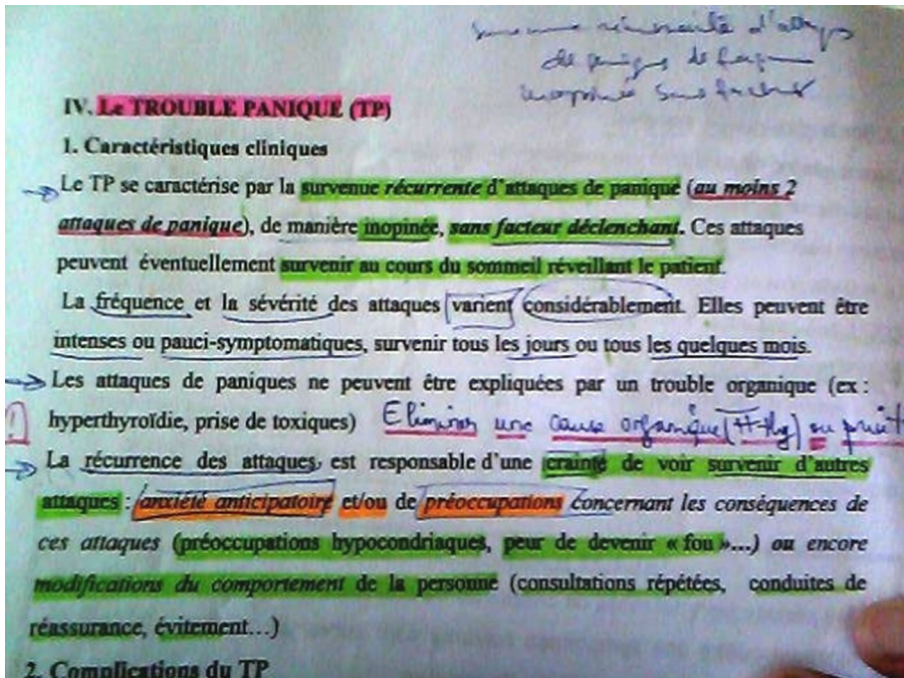 d'attaques
de panique de façon
inopinée sans facteur
IV. Le TROUBLE PANIQUE (TP)
1. Caractéristiques cliniques
Le TP se caractérise par la survenue récurrente d'attaques de panique (au moins 2
attaques de panique), de manière inopinée, sans facteur déclenchant. Ces attaques
peuvent éventuellement survenir au cours du sommeil réveillant le patient.
La fréquence et la sévérité des attaques varient considérablement. Elles peuvent être
intenses ou pauci-symptomatiques, survenir tous les jours ou tous les quelques mois.
Les attaques de paniques ne peuvent être expliquées par un trouble organique (ex :
hyperthyroïdie, prise de toxiques) Eliminer une cause organique ou
!
La récurrence des attaques, est responsable d'une crainte de voir survenir d'autres
attaques : anxiété anticipatoire et/ou de préoccupations concernant les conséquences de
ces attaques (préoccupations hypocondriaques, peur de devenir « fou »...) ou encore
modifications du comportement de la personne (consultations répétées, conduites de
réassurance, évitement...)
2. Complications du TP